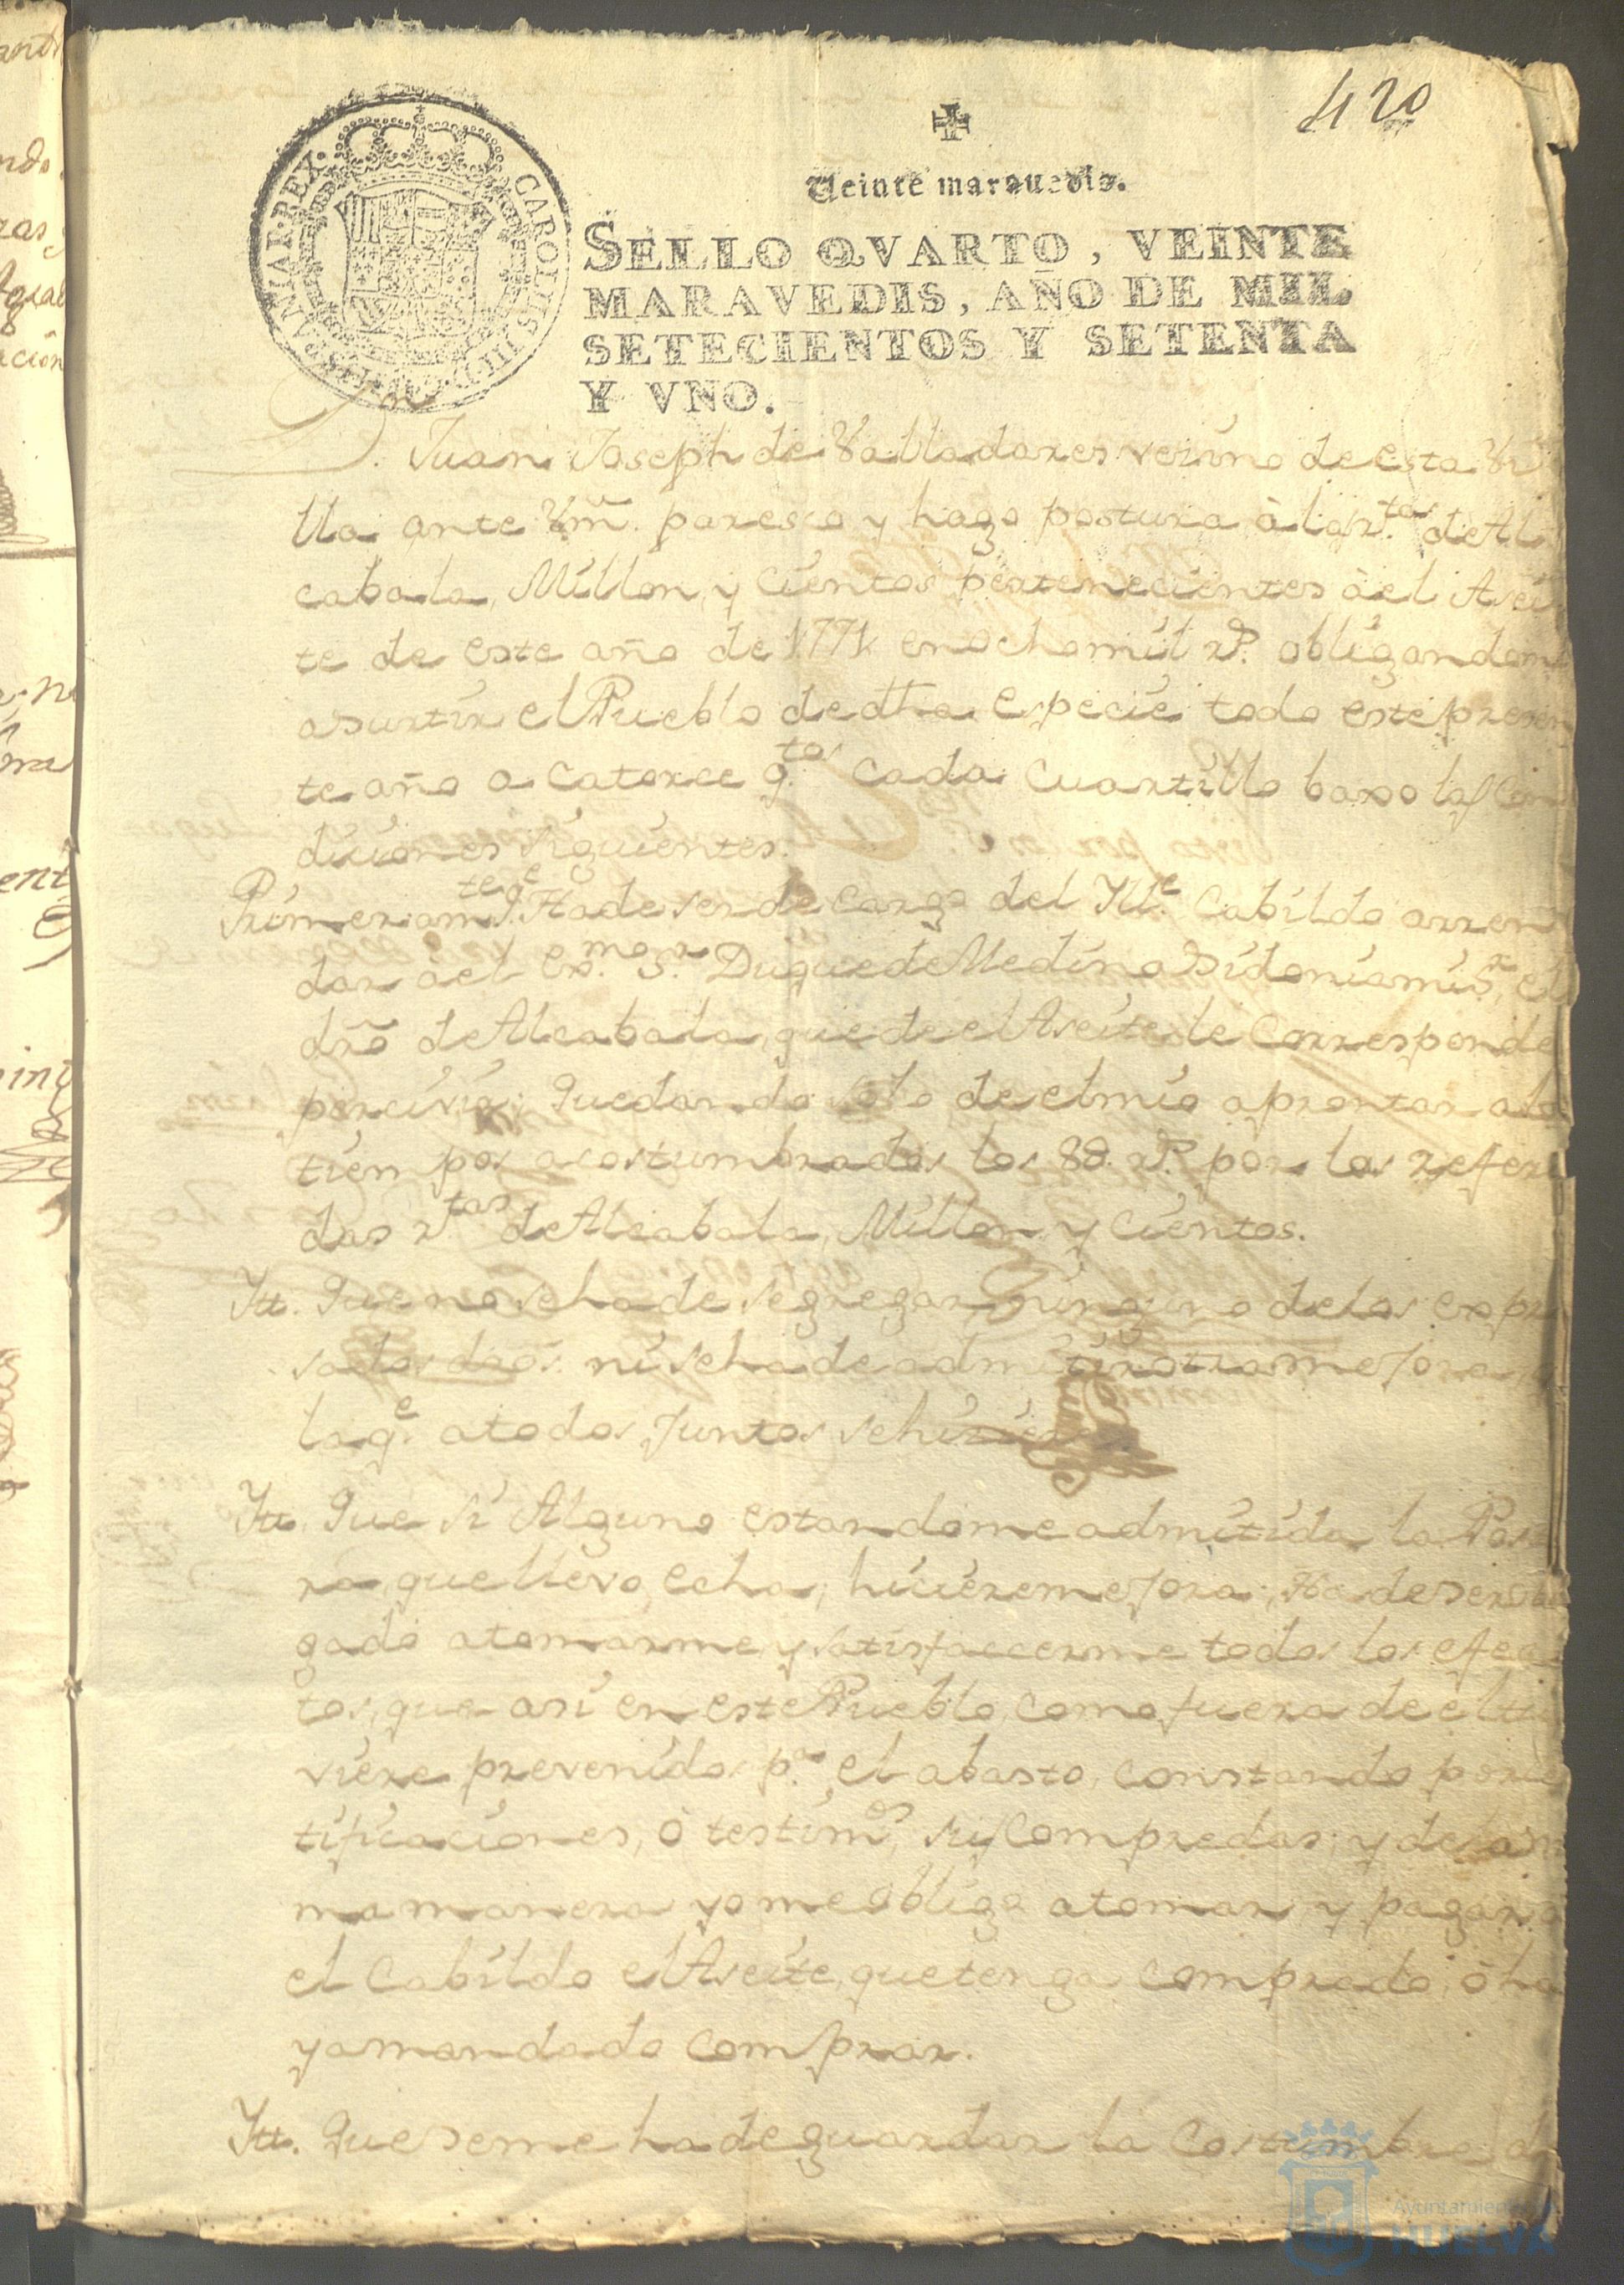 420
Veinte maravedis.
SELLO QVARTO, VEINTE
MARAVEDIS, AÑO DE MIL
SETECIENTOS Y SETENTA
Y VNO.
CAROLUS III D. G. HISPANIAR. REX.
Dn. Juan Joseph de Valladares vezino de esta Vi
lla ante Vm. paresco y hago postura à las rtas. de Al
cabala, Millon, y Cientos pertenecientes àel Asei
te de este año de 1771 en ocho mil rs. obligandome
a surtir el Pueblo de dha Especie todo este presen
te año a catorce qtos. cada cuartillo baxo las Con
diciones siguientes.
Primeramte. qe. Ha de ser de cargo del Ille. Cabildo arren
dar àel Exmo. Sr. Duque de Medina Sidonia mi Sr. el
dro de Alcabala, que de el Aseite le corresponde
percivir; Quedando solo de el mio aprontar a los
tiempos acostumbrados los 8U. rs. por las referi
das rtas de Alcabala, Millon, y Cientos.
Itt. Que no se ha de segregar ninguno de los expre
sados dros. ni se ha de admitir otra mejora
la qe. a todos Juntos se hiziere
Itt. Que si Alguno estandome admitida la Pos
ra, que llevo echa, hiciere mejora; Ha de ser obli
gado a tomarme, y satisfacerme todos los efec
tos, que asi en este Pueblo, como fuera de el tu
viere prevenidos pa. el abasto, constando por cer
tificaciones, ò testimos, sus Compredas; y de la mis
ma manera yo me obligo a tomar, y pagar a
el Cabildo el Aseite, que tenga comprado, ò ha
ya mandado comprar.
Itt. Que se me ha de guardar la Costumbre de
Ayuntamiento
HUELVA